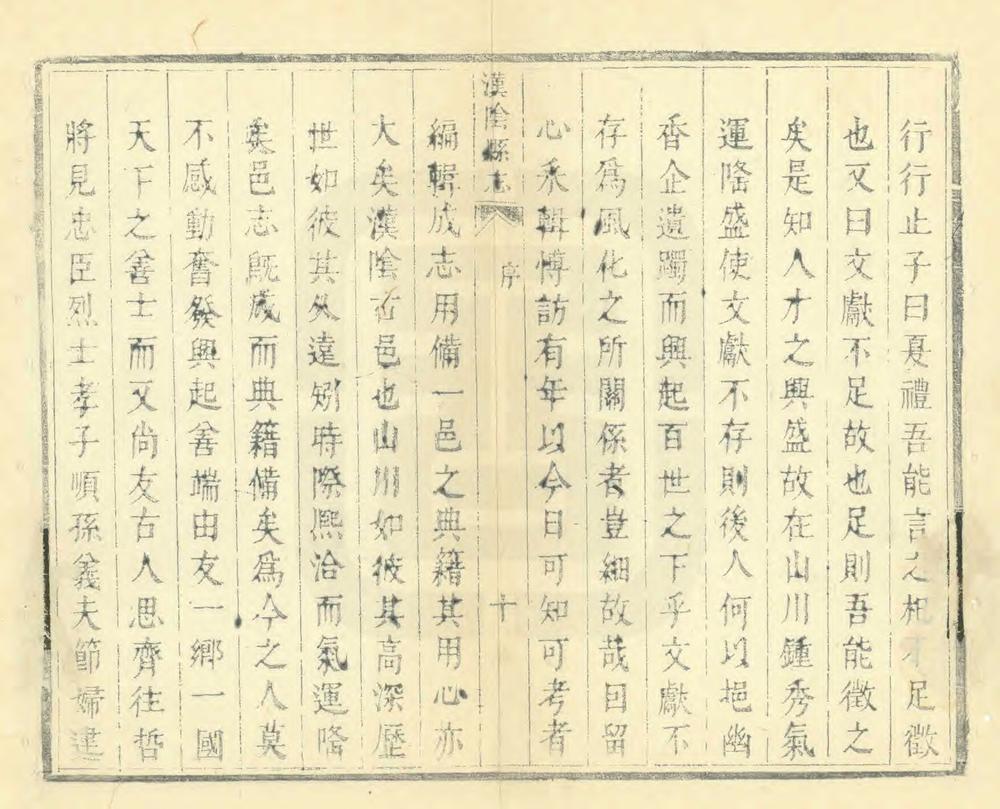 行行止子曰夏禮吾能言之杞不足徵
也又曰文獻不足故也足則吾能徵之
矣是知人才之興盛故在山川鍾秀氣
運隆盛使文獻不存則後人何以挹幽
香企遺躅而興起百世之下乎文獻不
存為風化之所關係者豈細故哉曰留
心永輯愽訪有年以今日可知可考者
漢陰縣志 序 十
編輯成志用備一邑之典籍其用心亦
大矣漢陰古邑也山川如彼其高深歷
世如彼其久遠矧時際熈洽而氣運隆
矣邑志既成而典籍備矣為今之人莫
不感動奮發興起善端由友一鄉一國
天下之善士而又尚友古人思齊往哲
將見忠臣烈士孝子順孫義夫節婦建